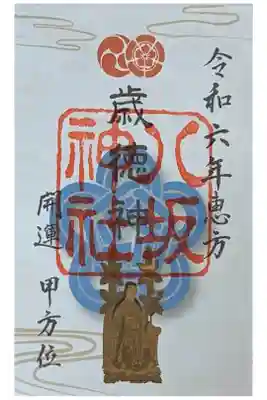 令和六年恵方
歳徳神
八坂神社
開運 甲方位